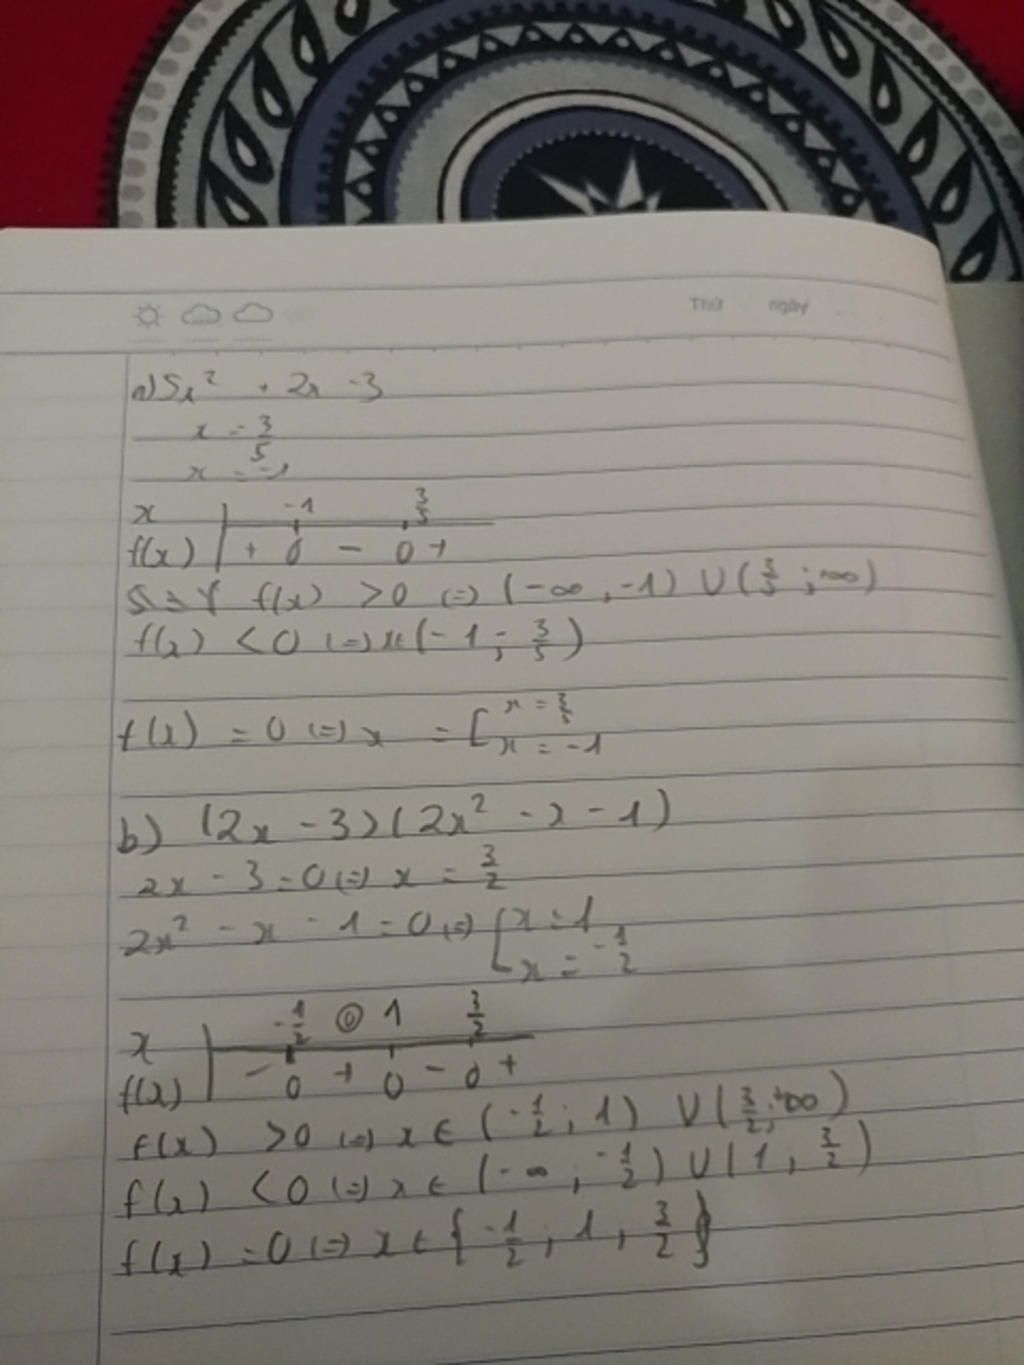 Thứ ngày
a) 5x² + 2x - 3
x = 3/5
x = -1
x -1 3/5
f(x) + 0 - 0 +
f(x) > 0 (=) (-∞, -1) U (3/5; +∞)
f(x) < 0 (=) x ∈ (-1; 3/5)
f(x) = 0 (=) x = [ x = 3/5
x = -1
b) (2x - 3)(2x² - x - 1)
2x - 3 = 0 (=) x = 3/2
2x² - x - 1 = 0 (=) [ x = 1
x = -1/2
x -1/2 0 1 3/2
f(x) - 0 + 0 - 0 +
f(x) > 0 (=) x ∈ (-1/2; 1) U (3/2; +∞)
f(x) < 0 (=) x ∈ (-∞; -1/2) U (1, 3/2)
f(x) = 0 (=) x ∈ { -1/2; 1, 3/2 }